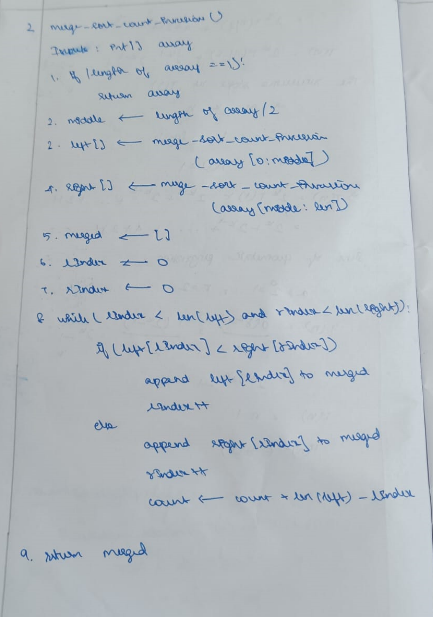 2 merge-sort-count-function()
Inputs: int[] array
1. If (length of array == 1):
return array
2. middle ← length of array/2
3. left[] ← merge-sort-count-function
(array[0:middle])
4. right[] ← merge-sort-count-function
(array[middle:len])
5. merged ← []
6. lIndex ← 0
7. rIndex ← 0
8 while(lIndex < len(left) and rIndex < len(right)):
if(left[lIndex] < right[rIndex])
append left[lIndex] to merged
lIndex++
else
append right[rIndex] to merged
rIndex++
count ← count + len(left) - lIndex
9. return merged